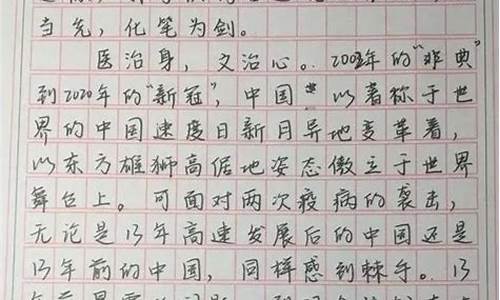 当先，化笔为剑。
医治身，文治心。2003年的“非典”
到2020年的“新冠”，中国 以著称于世
界的中国速度日新月异地变革着，
以东方雄狮高倨地姿态傲立于世界
舞台上。可面对两次疫病的袭击，
无论是13年高速发展后的中国还是
13年前的中国，同样感到棘手。13